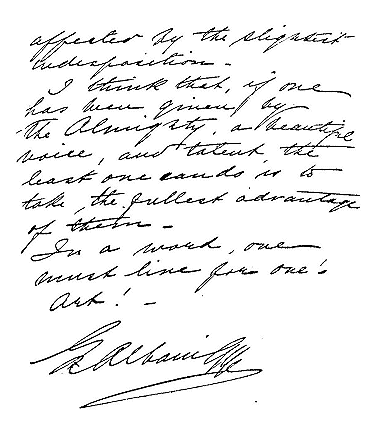 affected by the slightest
indisposition -
I think that, if one
has been given by
the Almighty, a beautiful
voice, and talent, the
least one can do, is to
take, the fullest advantage
of them -
In a word, one
must live for one's
Art! -
E Albani Gye